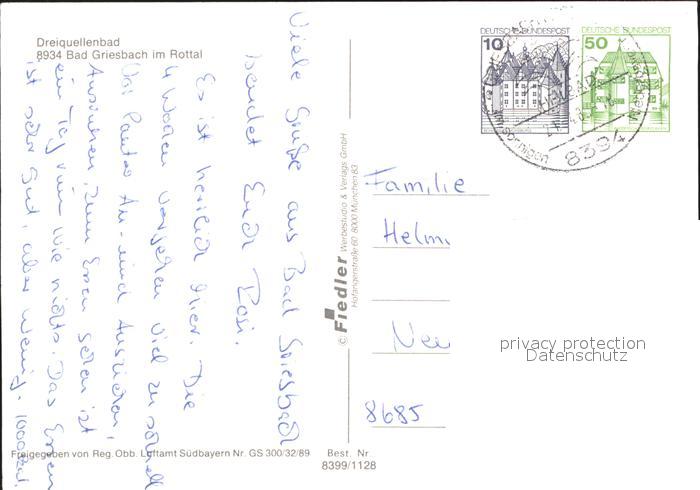 Dreiquellenbad
8934 Bad Griesbach im Rottal
Viele Grüße aus Bad Griesbach
sendet Euch Rosi.
Es ist herrlich hier. Die
4 Wochen vergehen viel zu schnell
Vor lauter An- und Ausziehen,
Ausruhen, zum Essen gehen ist
ein Tag wie nichts. Das Essen
ist sehr gut, aber wenig.
Freigegeben von Reg. Obb. Luftamt Südbayern Nr. GS 300/32/89
Best. Nr.
8399/1128
© Fiedler Werbestudio & Verlags GmbH
Hofangerstraße 60 8000 München 83
DEUTSCHE BUNDESPOST
10
DEUTSCHE BUNDESPOST
50
8394
Familie
Helm
Neu
8685
privacy protection
Datenschutz